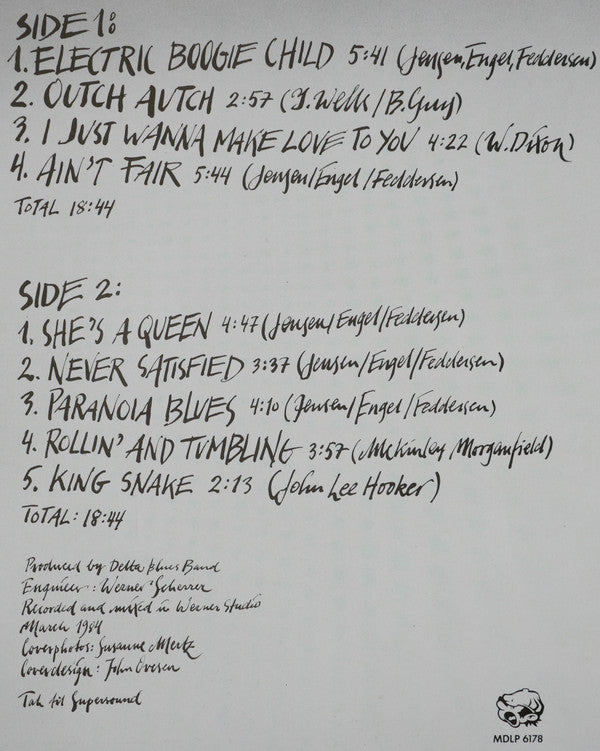 SIDE 1:
1. ELECTRIC BOOGIE CHILD 5:41 (Jensen, Engel, Feddersen)
2. OUTCH AUTCH 2:57 (J. Wells / B. Guy)
3. I JUST WANNA MAKE LOVE TO YOU 4:22 (W. Dixon)
4. AIN'T FAIR 5:44 (Jensen/Engel/Feddersen)
TOTAL 18:44
SIDE 2:
1. SHE'S A QUEEN 4:47 (Jensen/Engel/Feddersen)
2. NEVER SATISFIED 3:37 (Jensen/Engel/Feddersen)
3. PARANOIA BLUES 4:10 (Jensen/Engel/Feddersen)
4. ROLLIN' AND TUMBLING 3:57 (McKinley/Morganfield)
5. KING SNAKE 2:13 (John Lee Hooker)
TOTAL: 18:44
Produced by Delta Blues Band
Engineer: Werner Scherrer
Recorded and mixed in Werner Studio
March 1984
Coverphotos: Susanne Mertz
Coverdesign: John Ovesen
Tak til Supersound
MDLP 6178